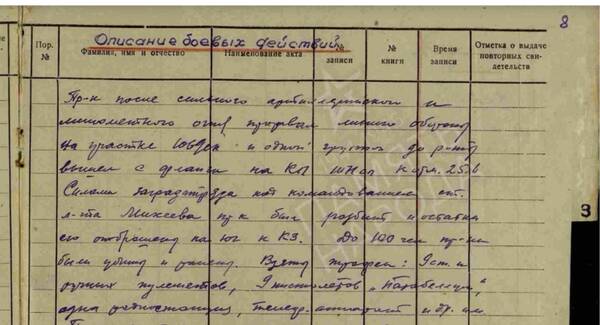 8
Описание боевых действий
Пор. №
Фамилия, имя и отчество
Наименование акта
№ записи
№ книги
Время записи
Отметка о выдаче повторных свидетельств
Пр-к после сильного артиллерийского и
минометного огня прорвал линию обороны
на участке и одной группой до роты
вышел с фланга на КП к отм. 25.6
Силами заградотряда под командованием ст.
л-та Михеева пр-к был разбит и остатки
его отброшены на юг к КЗ. До 100 чел пр-ка
были убиты и ранены. Взяты трофеи: 9 ст. и
ручных пулеметов, 9 пистолетов „Парабеллум",
одна радиостанция, телеgr. аппарат и др. им
З